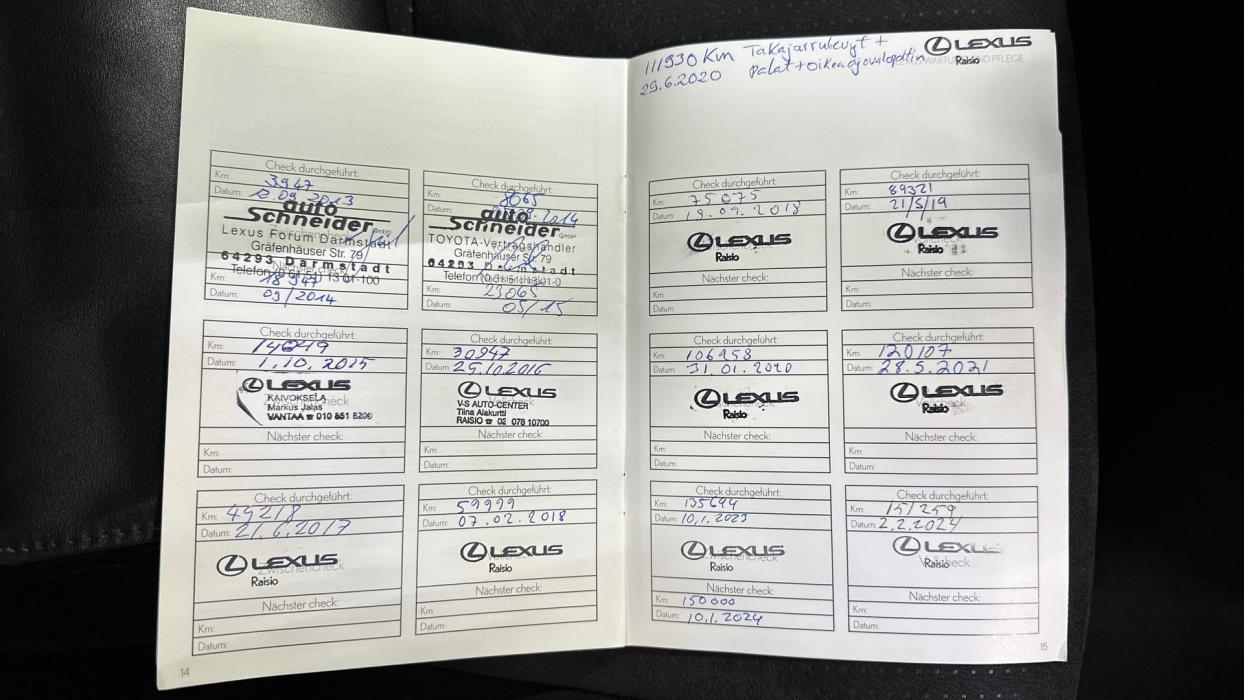 Check durchgeführt:
Km: 3947
Datum: 2.09.2013
auto
Schneider GmbH
Lexus Forum Darmstadt
Gräfenhäuser Str. 79
64293 Darmstadt
Km: 18947
Datum: 09/2014
Check durchgeführt:
Km: 8065
Datum: 09.2014
auto
Schneider GmbH
TOYOTA-Vertragshändler
Gräfenhäuser Str. 79
64293 Darmstadt
Km: 23065
Datum: 05/15
Check durchgeführt:
Km: 14849
Datum: 1.10.2015
LEXUS
KAIVOKSELA
Markus Jalas
VANTAA ☎ 010 851 8200
Nächster check:
Km:
Datum:
Check durchgeführt:
Km: 30947
Datum: 25.10.2016
LEXUS
V-S AUTO-CENTER
Tiina Alakurtti
RAISIO ☎ 02 078 10700
Nächster check:
Km:
Datum:
Check durchgeführt:
Km: 49218
Datum: 21.6.2017
LEXUS
Zwischencheck
Raisio
Nächster check:
Km:
Datum:
Check durchgeführt:
Km: 59999
Datum: 07.02.2018
LEXUS
Raisio
Nächster check:
Km:
Datum:
14
111930 Km Takajarrulevyt +
29.6.2020 Palat + Oikea ajovalopoltin
LEXUS
Raisio
Check durchgeführt:
Km: 75075
Datum: 19.09.2018
LEXUS
Raisio
Nächster check:
Km:
Datum:
Check durchgeführt:
Km: 89321
Datum: 21/5/19
LEXUS
Raisio
Nächster check:
Km:
Datum:
Check durchgeführt:
Km: 106958
Datum: 31.01.2020
LEXUS
Raisio
Nächster check:
Km:
Datum:
Check durchgeführt:
Km: 120107
Datum: 28.5.2021
LEXUS
Vollcheck
Raisio
Nächster check:
Km:
Datum:
Check durchgeführt:
Km: 135644
Datum: 10.1.2023
LEXUS
Zwischencheck
Raisio
Nächster check:
Km: 150000
Datum: 10.1.2024
Check durchgeführt:
Km: 151259
Datum: 2.2.2024
LEXUS
Vollcheck
Raisio
Nächster check:
Km:
Datum:
15